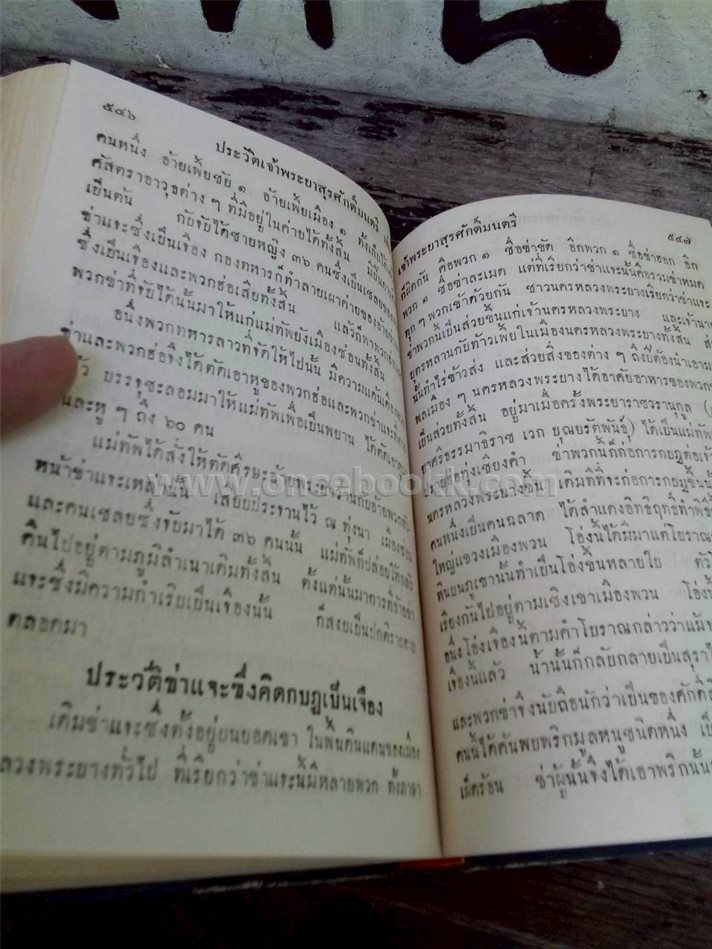 ๕๔๖
ประวัติเจ้าพระยาสุรศักดิ์มนตรี
คนหนึ่ง อ้ายเพี้ยชัย ๑ อ้ายเพี้ยเมือง ๑
ศัสตราอาวุธต่าง ๆ ที่มีอยู่ในค่ายได้ทั้งสิ้น
เป็นต้น กับจับได้ชายหญิง ๓๖ คนซึ่งเป็นเชลยของ
ข่าแจะซึ่งเป็นเจือง กองทหารก็ทำลายเผาค่ายของอ้าย
ซึ่งเป็นเจืองและพวกฮ่อเสียทั้งสิ้น แล้วก็พา
พวกข่าที่จับได้นั้นมาให้แก่แม่ทัพยังเมืองซ่อนทั้งสิ้น
อนึ่งพวกทหารลาวที่จัดให้ไปนั้น มีความแค้นเคือง
ข่าและพวกฮ่อจึงได้ตัดเอาหูของพวกฮ่อและพวกข่าแจะ
บรรจุชะลอมมาให้แม่ทัพเพื่อเป็นพยาน ได้ตัด
คนละหู ๆ ถึง ๖๐ คน
แม่ทัพได้สั่งให้ตัดศีรษะอ้าย
หน้าข่าแจะเหล่านั้น เสียบประจานไว้ ณ ทุ่งนา เมืองซ่อน
และคนเชลยซึ่งจับมาได้ ๓๖ คนนั้น แม่ทัพก็ปล่อยให้กลับ
คืนไปอยู่ตามภูมิลำเนาเดิมทั้งสิ้น ตั้งแต่นั้นมาการที่อ้ายข่า
แจะซึ่งมีความกำเริบเป็นเจืองนั้น ก็สงบเป็นปกติราบคาบ
ตลอดมา
ประวัติข่าแจะซึ่งคิดกบฏเป็นเจือง
เดิมข่าแจะซึ่งตั้งอยู่บนยอดเขา ในพื้นดินแดนของเมือง
หลวงพระบางทั่วไป ที่เรียกว่าข่าแจะนั้นมีหลายพวก ทั้งภาษา
เจ้าพระยาสุรศักดิ์มนตรี
๕๔๗
ก็ผิดกัน คือพวก ๑ ชื่อข่าขัด อีกพวก ๑ ชื่อข่าฮอก อีก
พวก ๑ ชื่อข่าละเมด แต่ที่เรียกว่าข่าแจะนั้นคือรวมข่าหมด
ทุก ๆ พวกเข้าด้วยกัน ชาวนครหลวงพระบางเรียกว่าข่าแจะ
ข่าพวกนั้นเป็นส่วยขึ้นแก่เจ้านครหลวงพระบาง และเจ้านาย
บุตรหลานกับท้าวเพี้ยในเมืองนครหลวงพระบางทั้งสิ้น
นั้นทำไร่ข้าวส่ง และส่วยสิ่งของต่าง ๆ ถึงปีต้องนำเอามา
พลเมือง ๆ นครหลวงพระบางได้อาศัยอาหารของพวก
เป็นส่วยทั้งสิ้น อยู่มาเมื่อครั้งพระยาราชวรานุกูล
ยาศรีธรรมาธิราช เวก บุณยรัตพันธุ์) ได้เป็นแม่ทัพ
ฮ่อทุ่งเชียงคำ ข่าพวกนั้นก็ก่อการกบฏต่อเจ้า
นครหลวงพระบางขึ้น เดิมทีที่จะก่อการกบฏขึ้นนั้น
คนหนึ่งเป็นคนฉลาด ได้สำแดงอิทธิฤทธิ์ทำพิธี
ใหญ่แขวงเมืองพวน โอ่งนั้นได้มีมาแต่โบราณ
หินบนภูเขานั้นทำเป็นโอ่งขึ้นหลายใบ
เรียงกันไปอยู่ตามเชิงเขาเมืองพวน โอ่ง
อนึ่งโอ่งเจืองนี้ตามคำโบราณกล่าวว่าแม้น
เจืองนี้แล้ว น้ำนั้นก็กลับกลายเป็นสุรา
และพวกข่าจึงนับถือนักว่าเป็นของศักดิ์
คนนี้ได้ค้นพบพริกมูลหนูชนิดหนึ่ง เป็น
เผ็ดร้อน ข่าผู้นั้นจึงได้เอาพริกนั้น
www.oncebookk.com